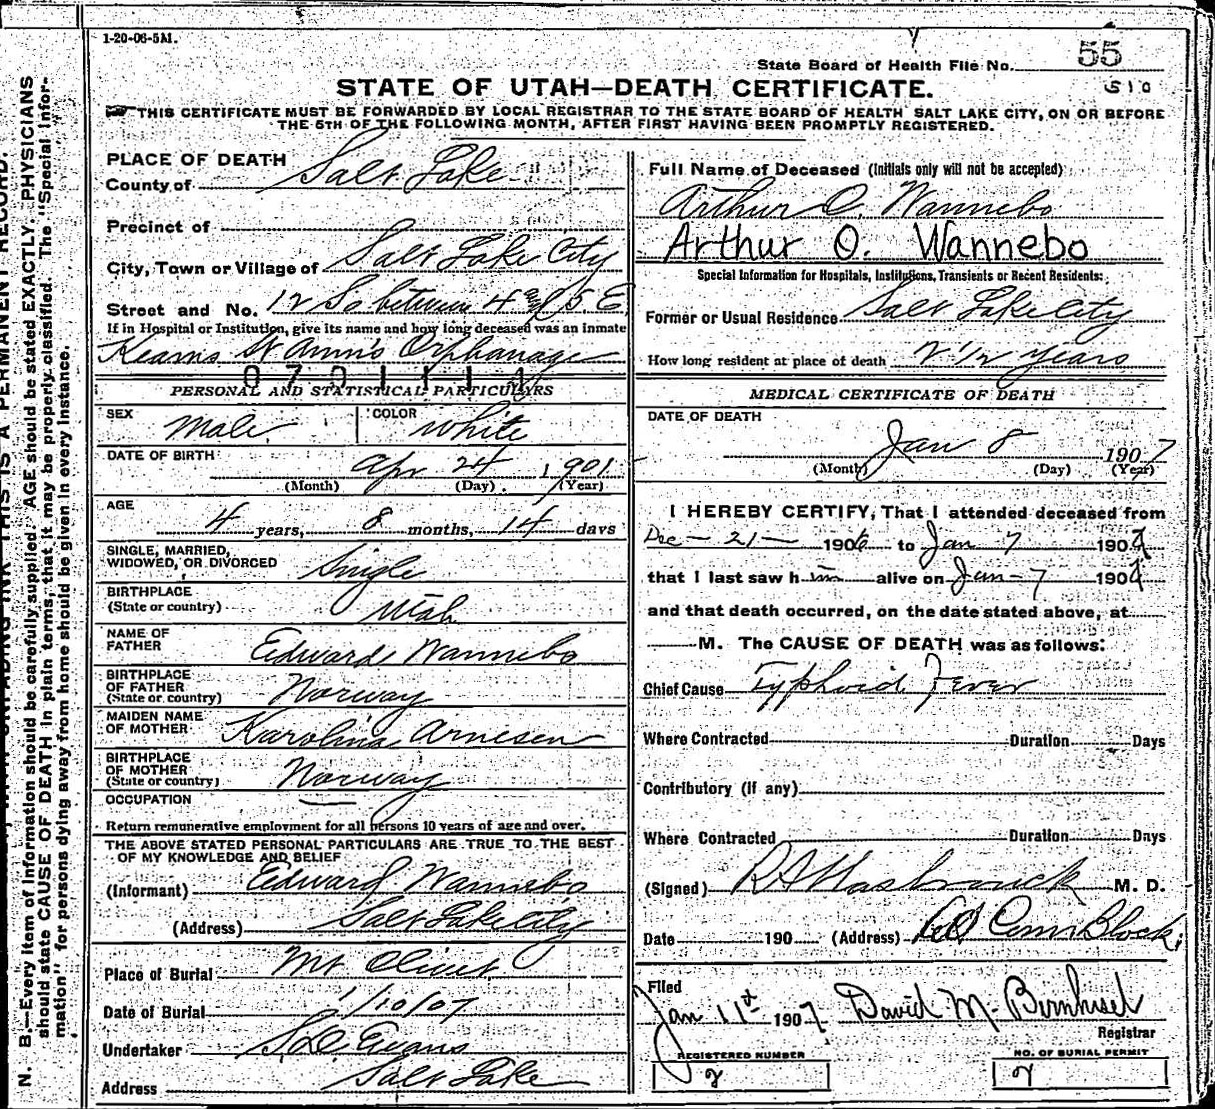 1-20-06-5M.
State Board of Health File No. 55
510
STATE OF UTAH—DEATH CERTIFICATE.
THIS CERTIFICATE MUST BE FORWARDED BY LOCAL REGISTRAR TO THE STATE BOARD OF HEALTH SALT LAKE CITY, ON OR BEFORE
THE 5TH OF THE FOLLOWING MONTH, AFTER FIRST HAVING BEEN PROMPTLY REGISTERED.
PLACE OF DEATH
County of Salt Lake
Precinct of
City, Town or Village of Salt Lake City
Street and No. 12 So between 4 and 5 E
If in Hospital or Institution, give its name and how long deceased was an inmate
Kearns St Ann's Orphanage
0701114
PERSONAL AND STATISTICAL PARTICULARS
SEX Male COLOR White
DATE OF BIRTH Apr 24 1901
(Month) (Day) (Year)
AGE
4 years, 8 months, 14 days
SINGLE, MARRIED,
WIDOWED, OR DIVORCED Single
BIRTHPLACE
(State or country) Utah
NAME OF
FATHER Edward Wannebo
BIRTHPLACE
OF FATHER
(State or country) Norway
MAIDEN NAME
OF MOTHER Karolina Arnesen
BIRTHPLACE
OF MOTHER
(State or country) Norway
OCCUPATION —
Return remunerative employment for all persons 10 years of age and over.
THE ABOVE STATED PERSONAL PARTICULARS ARE TRUE TO THE BEST
OF MY KNOWLEDGE AND BELIEF
(Informant) Edward Wannebo
(Address) Salt Lake City
Place of Burial Mt Olivet
Date of Burial 1/10/07
Undertaker S. D. Evans
Address Salt Lake
Full Name of Deceased (Initials only will not be accepted)
Arthur O. Wannebo
Arthur O. Wannebo
Special Information for Hospitals, Institutions, Transients or Recent Residents:
Former or Usual Residence Salt Lake City
How long resident at place of death 2 1/2 years
MEDICAL CERTIFICATE OF DEATH
DATE OF DEATH
Jan 8 1907
(Month) (Day) (Year)
I HEREBY CERTIFY, That I attended deceased from
Dec - 21 - 1906 to Jan 7 1907
that I last saw him alive on Jan - 7 1907
and that death occurred, on the date stated above, at
M. The CAUSE OF DEATH was as follows:
Chief Cause Typhoid Fever
Where Contracted Duration Days
Contributory (if any)
Where Contracted Duration Days
(Signed) R A Hasbrouck M. D.
Date 190 (Address) Com Block
Filed
Jan 11st 1907 David M. Bernhisel
Registrar
REGISTERED NUMBER
2
NO. OF BURIAL PERMIT
2
N. B.—Every item of information should be carefully supplied. AGE should be stated EXACTLY. PHYSICIANS
should state CAUSE OF DEATH in plain terms, that it may be properly classified. The "Special Infor-
mation" for persons dying away from home should be given in every instance.
THIS IS A PERMANENT RECORD.